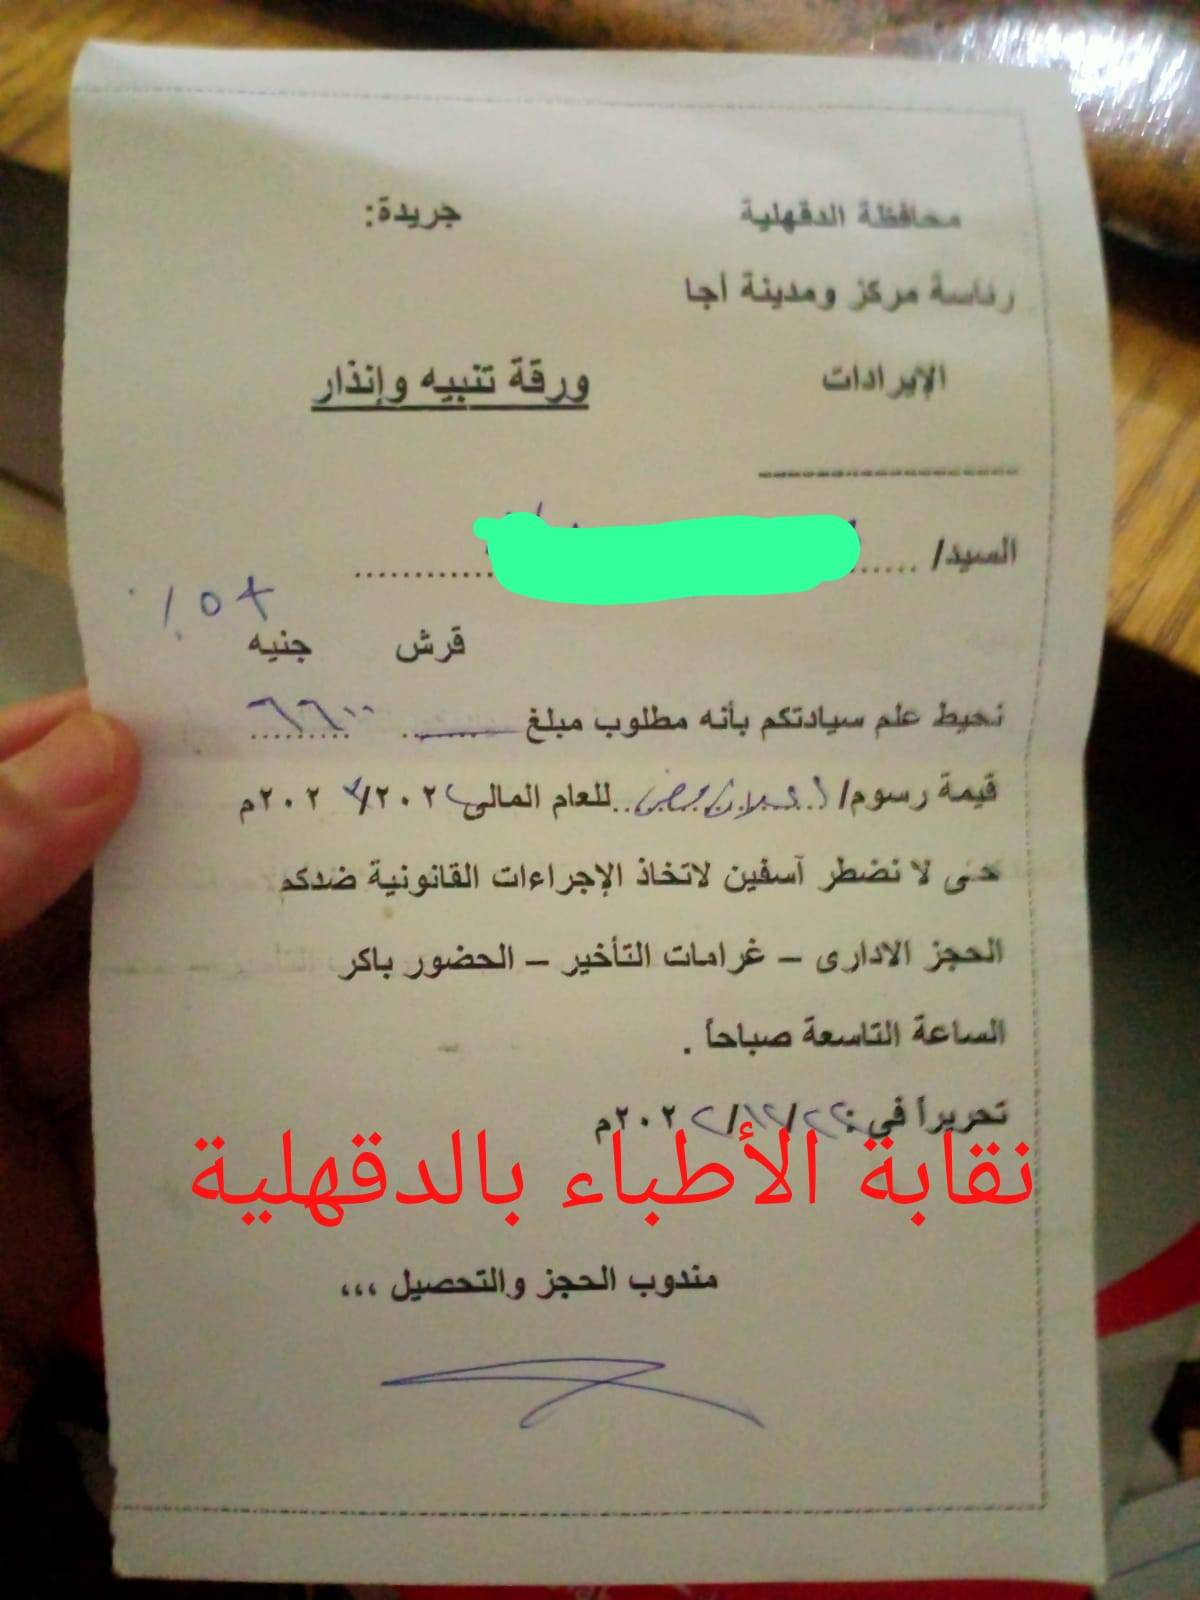 محافظة الدقهلية
جريدة:
رئاسة مركز ومدينة أجا
الإيرادات
ورقة تنبيه وإنذار
السيد/
قرش جنيه
نحيط علم سيادتكم بأنه مطلوب مبلغ ٦٦٠٠
قيمة رسوم/ للعام المالى ٢٠٢ /٢٠٢م
حتى لا نضطر آسفين لاتخاذ الإجراءات القانونية ضدكم
الحجز الادارى – غرامات التأخير – الحضور باكر
الساعة التاسعة صباحاً .
تحريراً في: ٢٢/١٢/٢٠٢٢م
نقابة الأطباء بالدقهلية
مندوب الحجز والتحصيل ،،،